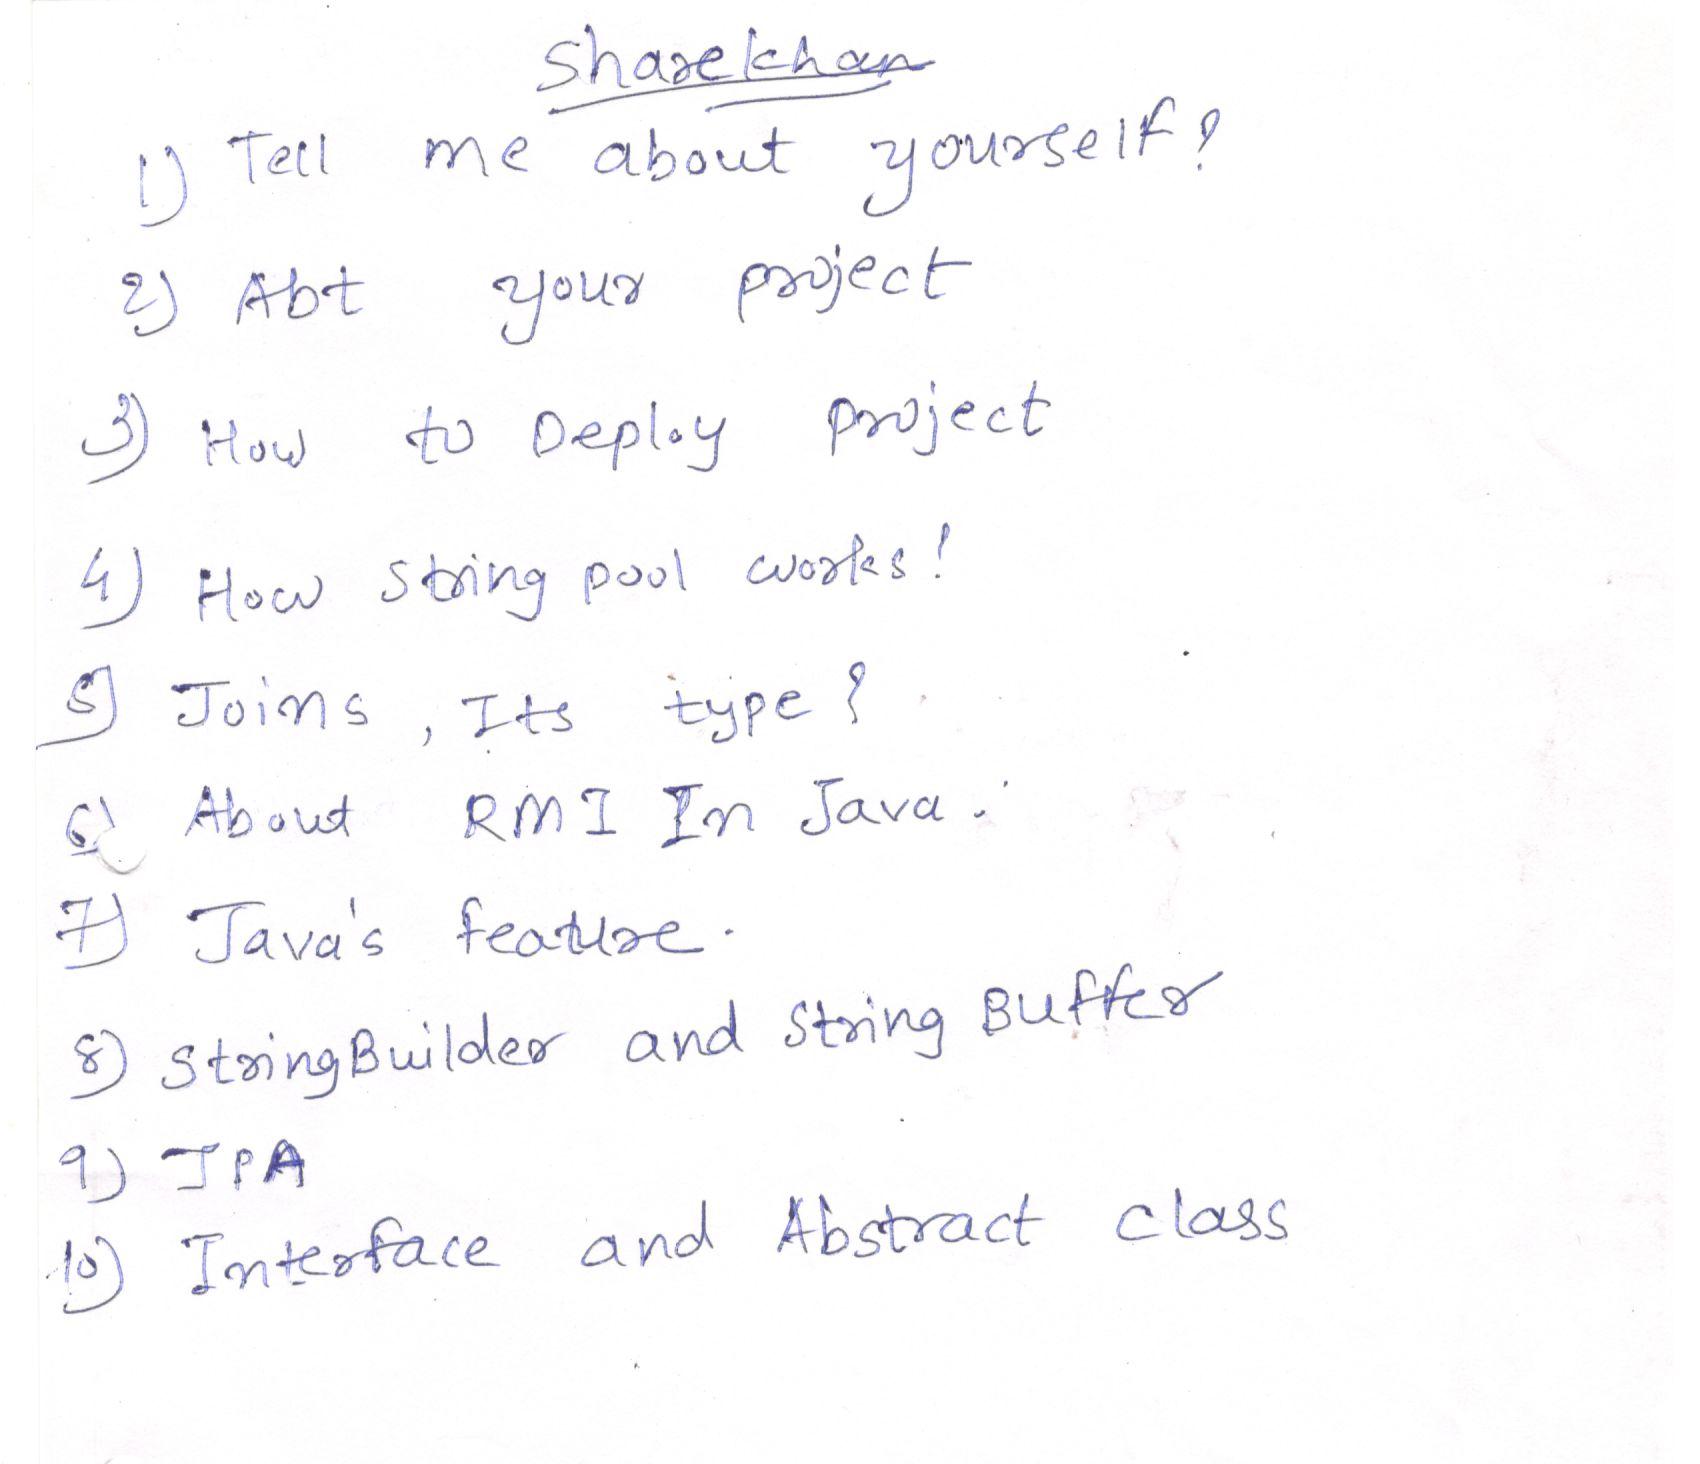 Sharekhan
1) Tell me about yourself?
2) Abt your project
3) How to Deploy project
4) How String pool works?
5) Joins, Its type?
6) About RMI In Java.
7) Java's feature.
8) StringBuilder and String Buffer
9) JPA
10) Interface and Abstract class